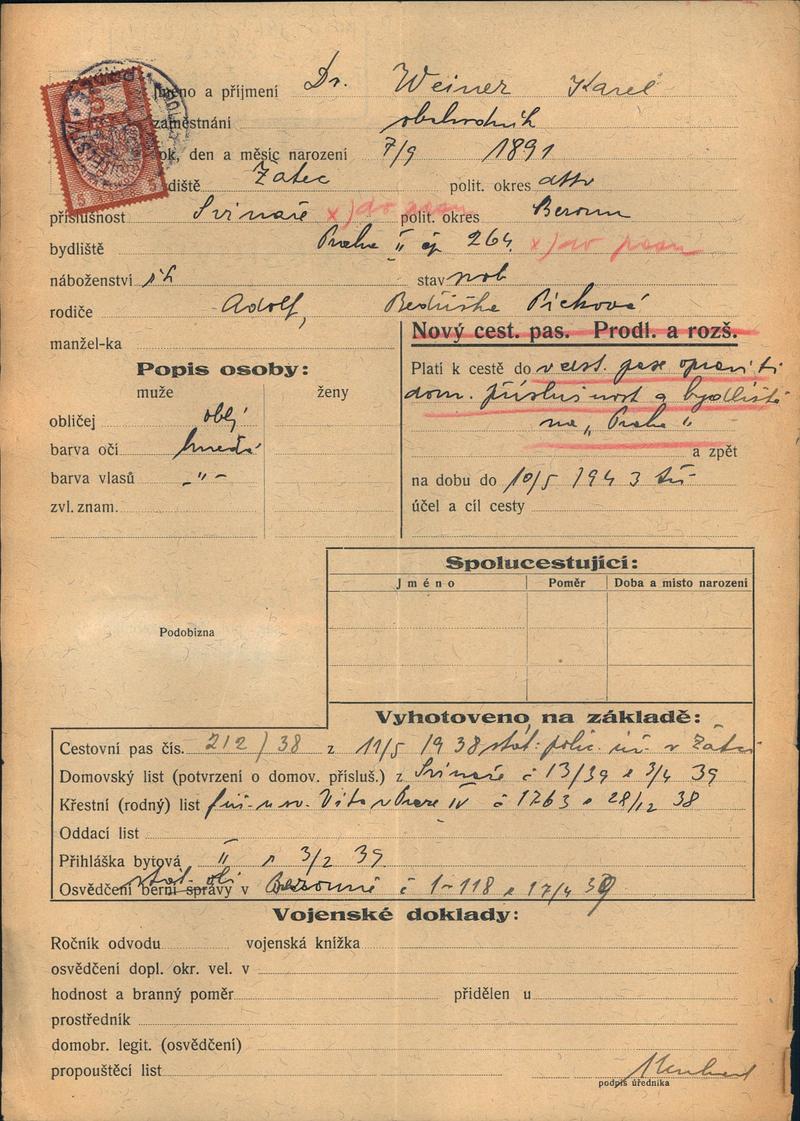 méno a příjmení Dr. Weiner Karel
zaměstnání obchodník
ok, den a měsíc narození 7/9 1891
diště Žatec polit. okres dtto
příslušnost Svinaře x) do pasu polit. okres Beroun
bydliště Praha II čp 264. x) do pasu
náboženství řk stav svob
rodiče Adolf, Bedřiška Picková
manžel-ka
Nový cest. pas. Prodl. a rozš.
Popis osoby:
muže ženy
Platí k cestě do v cest. pase opraviti
dom. příslušnost a bydliště
na „Praha"
a zpět
obličej obl.
barva očí hnědá
barva vlasů -"-
zvl. znam.
na dobu do 10/5 1943
účel a cíl cesty
Spolucestující:
Jméno Poměr Doba a místo narození
Podobizna
Vyhotoveno na základě:
Cestovní pas čís. 212/38 z 11/5 1938 stát. polic. úř. v Žatci
Domovský list (potvrzení o domov. přísluš.) z Svinaře č 13/39 z 3/4 39
Křestní (rodný) list u sv. Víta v Praze IV č 1763 z 28/12 38
Oddací list
Přihláška bytová II z 3/2 39
Osvědčení berní správy v Berouně č 1-118 z 17/4 39
Vojenské doklady:
Ročník odvodu vojenská knížka
osvědčení dopl. okr. vel. v
hodnost a branný poměr přidělen u
prostředník
domobr. legit. (osvědčení)
propouštěcí list
podpis úředníka